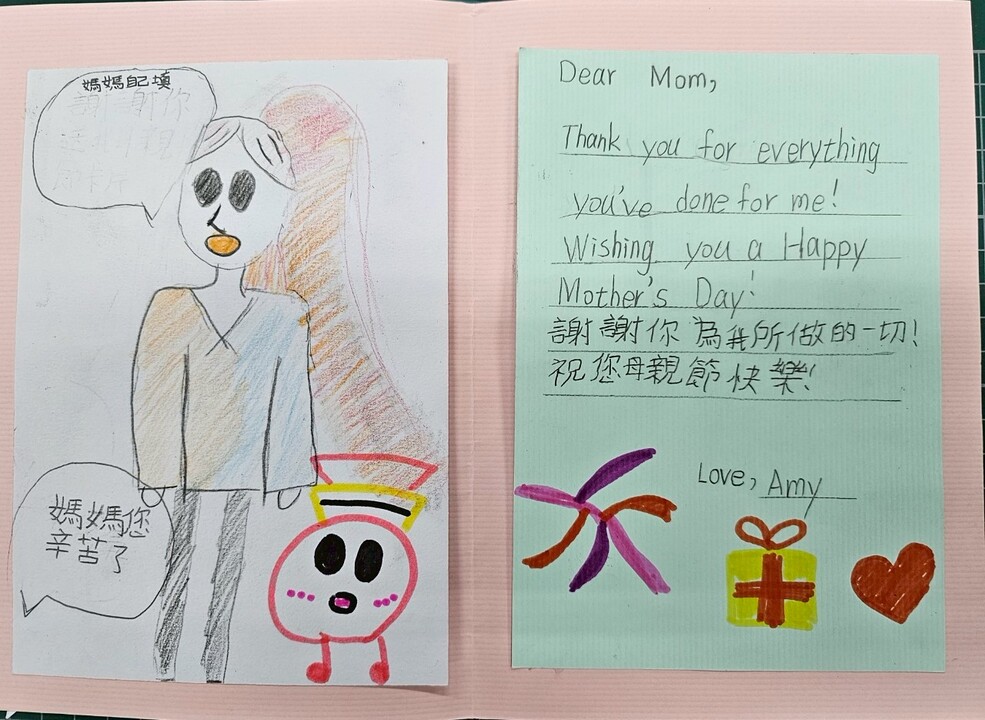 媽媽自己填
謝謝你
媽媽您
辛苦了
Dear Mom,
Thank you for everything
you've done for me!
Wishing you a Happy
Mother's Day!
謝謝你為我所做的一切!
祝您母親節快樂!
Love, Amy